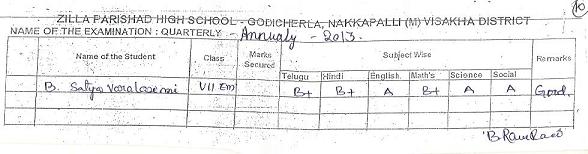 10
ZILLA PARISHAD HIGH SCHOOL - GODICHERLA, NAKKAPALLI (M) VISAKHA DISTRICT
NAME OF THE EXAMINATION : QUARTERLY - Annualy - 2013.
Name of the Student Class Marks Secured Subject Wise Remarks
Telugu Hindi English Math's Science Social
B. Satya Varalaxmi VII Em B+ B+ A B+ A A Good.